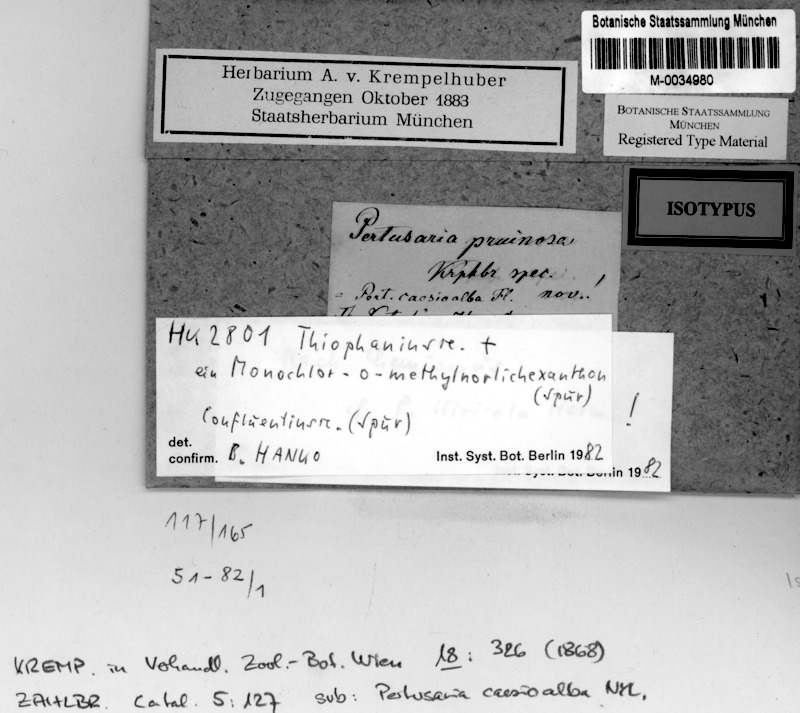 Botanische Staatssammlung München
M-0034980
Herbarium A. v. Krempelhuber
Zugegangen Oktober 1883
Staatsherbarium München
BOTANISCHE STAATSSAMMLUNG
MÜNCHEN
Registered Type Material
ISOTYPUS
Pertusaria pruinosa
Krphbr spec. !
= Pert. caesioalba Fl. nov.
HU 2801 Thiophaninsre. +
ein Monochlor-o-methylnorlichexanthon
(Spur)
Confluentinsre. (Spur) !
det.
confirm. B. HANKO Inst. Syst. Bot. Berlin 1982
1982
117/165
51-82/1
KREMP. in Vehandl. Zool.-Bot. Wien 18: 326 (1868)
ZAHLBR. Catal. 5: 127 sub: Pertusaria caesioalba NYL.